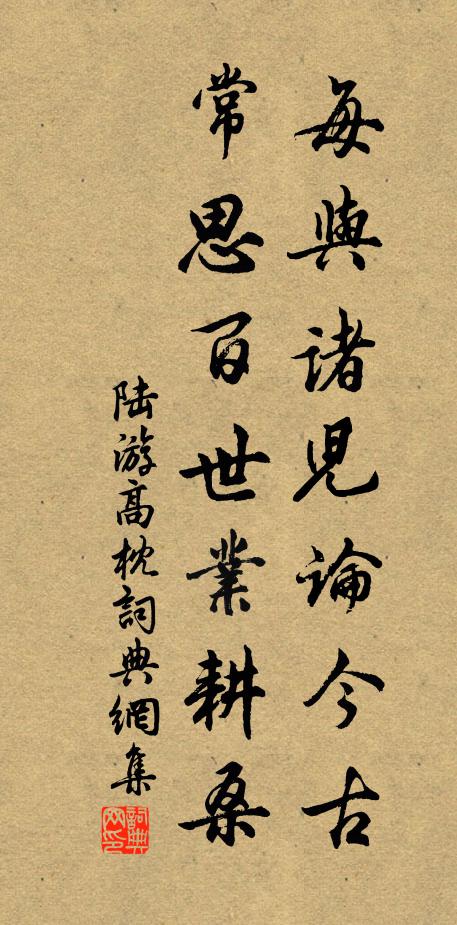 每與諸兒論今古
常思百世業耕桑
陸游高枕詞典網集
詞典网印